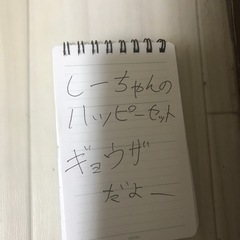 しーちゃんの
ハッピーセット
ギョウザ
だよー